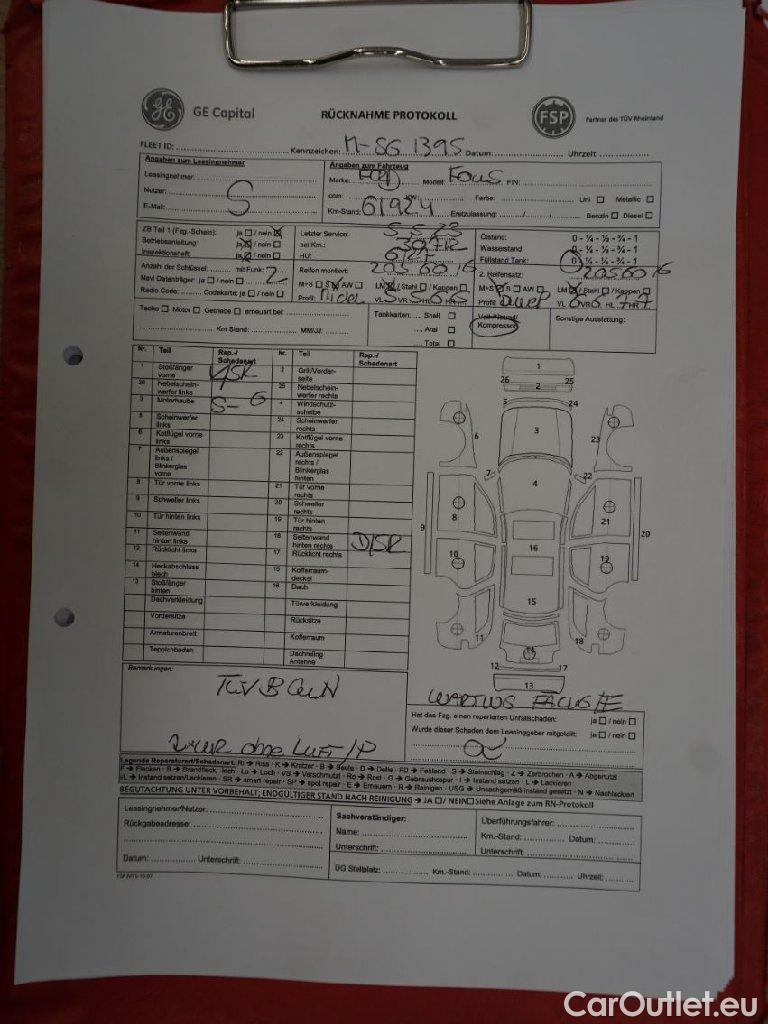 GE Capital RÜCKNAHME PROTOKOLL FSP Partner des TÜV Rheinland
FLEET ID: Kennzeichen: M-SG 1395 Datum: Uhrzeit:
Angaben zum Leasingnehmer Angaben zum Fahrzeug
Leasingnehmer: Marke: FORD Model: FOCUS FIN:
Nutzer: S ccm: KW: Farbe: Uni □ Metallic □
E-Mail: Km-Stand: 61924 Erstzulassung: / / Benzin □ Diesel □
ZB Teil 1 (Frg.-Schein): ja □ / nein ☒ Letzter Service: Distanz: 0 - ¼ - ½ - ¾ - 1
Betriebsanleitung: ja ☒ / nein □ bei Km.: Wasserstand 0 - ¼ - ½ - ¾ - 1
Inspektionsheft ja ☒ / nein □ HU: Füllstand Tank: 0 - ¼ - ½ - ¾ - 1
Anzahl der Schlüssel: mit Funk: 2 Reifen montiert: 205 60 16 2. Reifensatz: 205 60 16
Navi Datenträger: ja □ / nein □ M+S □ S ☒ AW □ LM ☒ / Stahl □ / Kappen □ M+S ☒ S □ AW □ LM ☒ / Stahl □ / Kappen □
Radio Code: Codekarte: ja □ / nein □ Profil: VL 5 VR 5 HL HR 5 Profil: VL VR HL 7 HR 7
Tacho □ Motor □ Getriebe □ erneuert bei: Tankkarten: Shell □ Voll-Ersatzrad Sonstige Ausstattung:
Km Stand: MM/JJ: Aral □ Kompressor
Total □
Nr. Teil Rep.-/ Schadensart Nr. Teil Rep.-/ Schadensart
1 Stoßfänger vorne 2 Grill/Vorderseite
26 Nebelscheinwerfer links 25 Nebelscheinwerfer rechts
3 Motorhaube S-G 4 Windschutzscheibe
5 Scheinwerfer links 24 Scheinwerfer rechts
6 Kotflügel vorne links 23 Kotflügel vorne rechts
7 Außenspiegel links / Blinkerglas vorne 22 Außenspiegel rechts / Blinkerglas hinten
8 Tür vorne links 21 Tür vorne rechts
9 Schweller links 20 Schweller rechts
10 Tür hinten links 19 Tür hinten rechts
11 Seitenwand hinten links 18 Seitenwand hinten rechts D/SR
12 Rücklicht links 17 Rücklicht rechts
14 Heckabschlussblech 15 Kofferraumdeckel
13 Stoßfänger hinten 16 Dach
Dachverkleidung Türverkleidung
Vordersitze Rücksitze
Armaturenbrett Kofferraum
Teppichboden Dachreling Antenne
1
26 2 25
5 24
6 3 23
7 22
4
8 21
9 20
10 16 19
15
11 14 18
12 17
13
Bemerkungen:
Hat das Fzg. einen reparierten Unfallschaden: ja □ / nein □
Wurde dieser Schaden dem Leasinggeber mitgeteilt: ja □ / nein □
Legende Reparaturart/Schadenart: Ri → Riss · K → Kratzer · B → Beule · D → Delle · FD → Fehlend · S → Steinschlag · Z → Zerbrochen · A → Abgenutzt
F → Flecken · B → Brandfleck, -loch · Lo → Loch · VS → Verschmutzt · Ro → Rost · G → Gebrauchsspur · I → Instand setzen · L → Lackieren
I/L → Instand setzen/Lackieren · SR → smart repair · SP → spot repair · E → Erneuern · R → Reinigen · USG → Unsachgemäß instand gesetzt · N → Nachlackiert
BEGUTACHTUNG UNTER VORBEHALT; ENDGÜLTIGER STAND NACH REINIGUNG → JA □ / NEIN □ Siehe Anlage zum RN-Protokoll
Leasingnehmer/Nutzer: Sachverständiger: Überführungsfahrer:
Rückgabeadresse: Name: Km.-Stand: Datum:
Unterschrift: Unterschrift:
Datum: Unterschrift: ÜG Stellplatz: Km.-Stand: Datum: Uhrzeit:
CarOutlet.eu